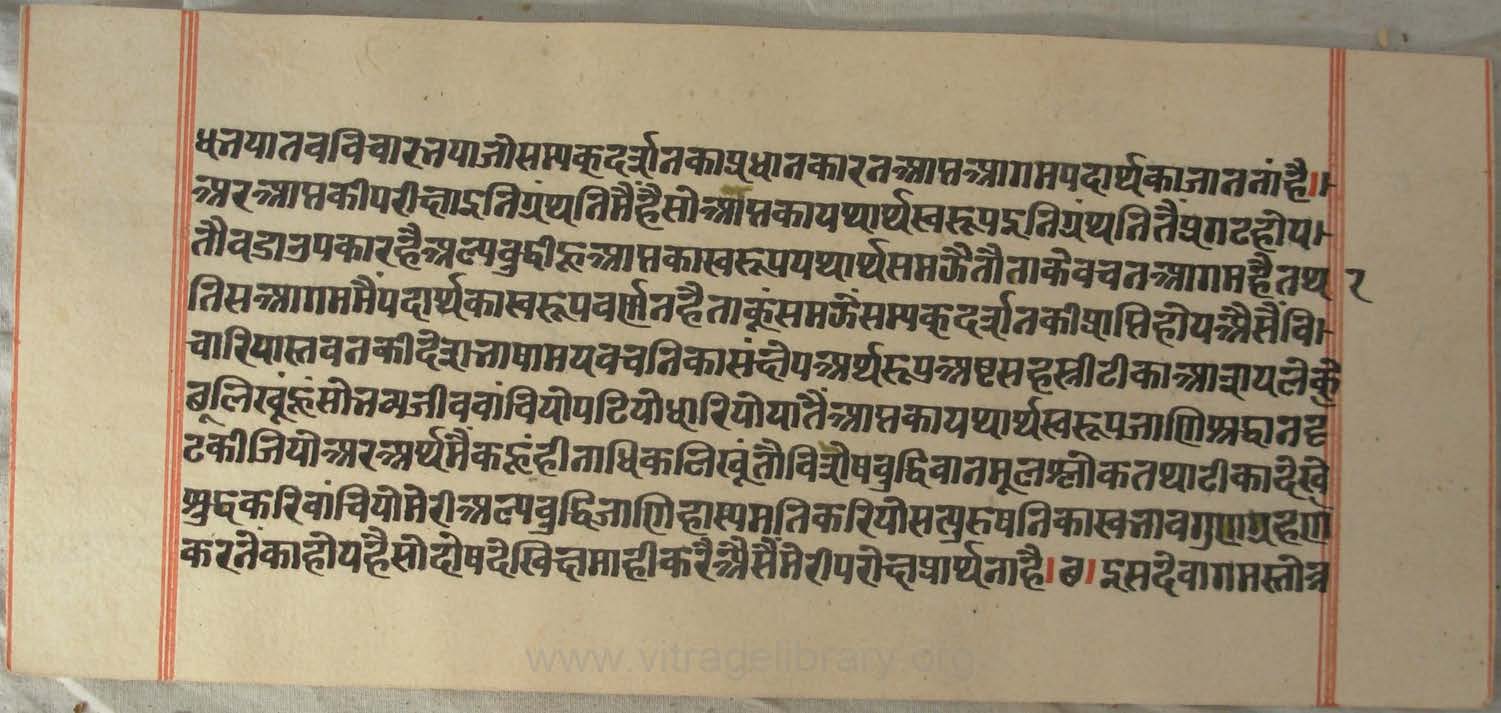 ध भया तब विचार भया जो सम्यक् दर्शन का प्रधान कारन आप्त आगम पदार्थ का जाननां है।।
अर आप्त की परीक्षा इनि ग्रंथनि मैं है सो आप्त का यथार्थ स्वरूप इनि ग्रंथनि तैं प्रगट होय।
तौ बडा उपकार है अल्पबुद्धी हू आप्त का स्वरूप यथार्थ समझै तौ ता के वचन आगम है तथ २
तिस आगम मैं पदार्थ का स्वरूप वर्णन है ताकूं समझैं सम्यक् दर्शन की प्राप्ति होय अैसैं वि।
चारि या स्तवन की देशभाषामय वचनिका संक्षेप अर्थरूप अष्टसहस्री टीका आशय ले कै
कछू लिखूं हूं सो भव्य जीव वांचियो पढियो धारियो या तैं आप्त का यथार्थ स्वरूप जाणि श्रद्धान दृ
ढ कीजियो अर अर्थ मैं कहूं हीनाधिक लिखूं तौ विशेष बुद्धिवान मूल श्लोक तथा टीका देखि
शुद्ध करि वांचियो मेरी अल्पबुद्धि जाणि हास्य मति करियो सत्पुरुषनि का स्वभाव गुण ग्रहण
करने का होय है सो दोष देखि क्षमा ही करै अैसैं मेरी परोक्ष प्रार्थना है। छ। इस देवागमस्तोत्र
www.vitragelibrary.org